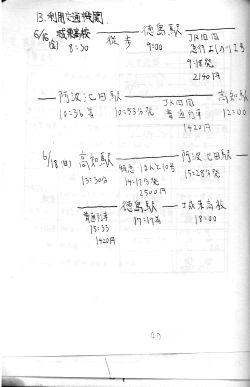 13.利用交通機関
6/16(金) 城東高校 ── 徳島駅 ──
8:30 徒歩 9:00 JR四国
急行よしの川2号
9:18発
2140円
── 阿波池田駅 ── 高知駅
10:36着 10:53分発 JR四国 12:00
普通列車
1420円
6/18(日) 高知駅 ── 阿波池田駅 ──
13:30分 特急 10号 15:28分発
14:17分発
2500円
── 徳島駅 ── 城東高校
普通列車 17:17着 18:00
15:33
1420円